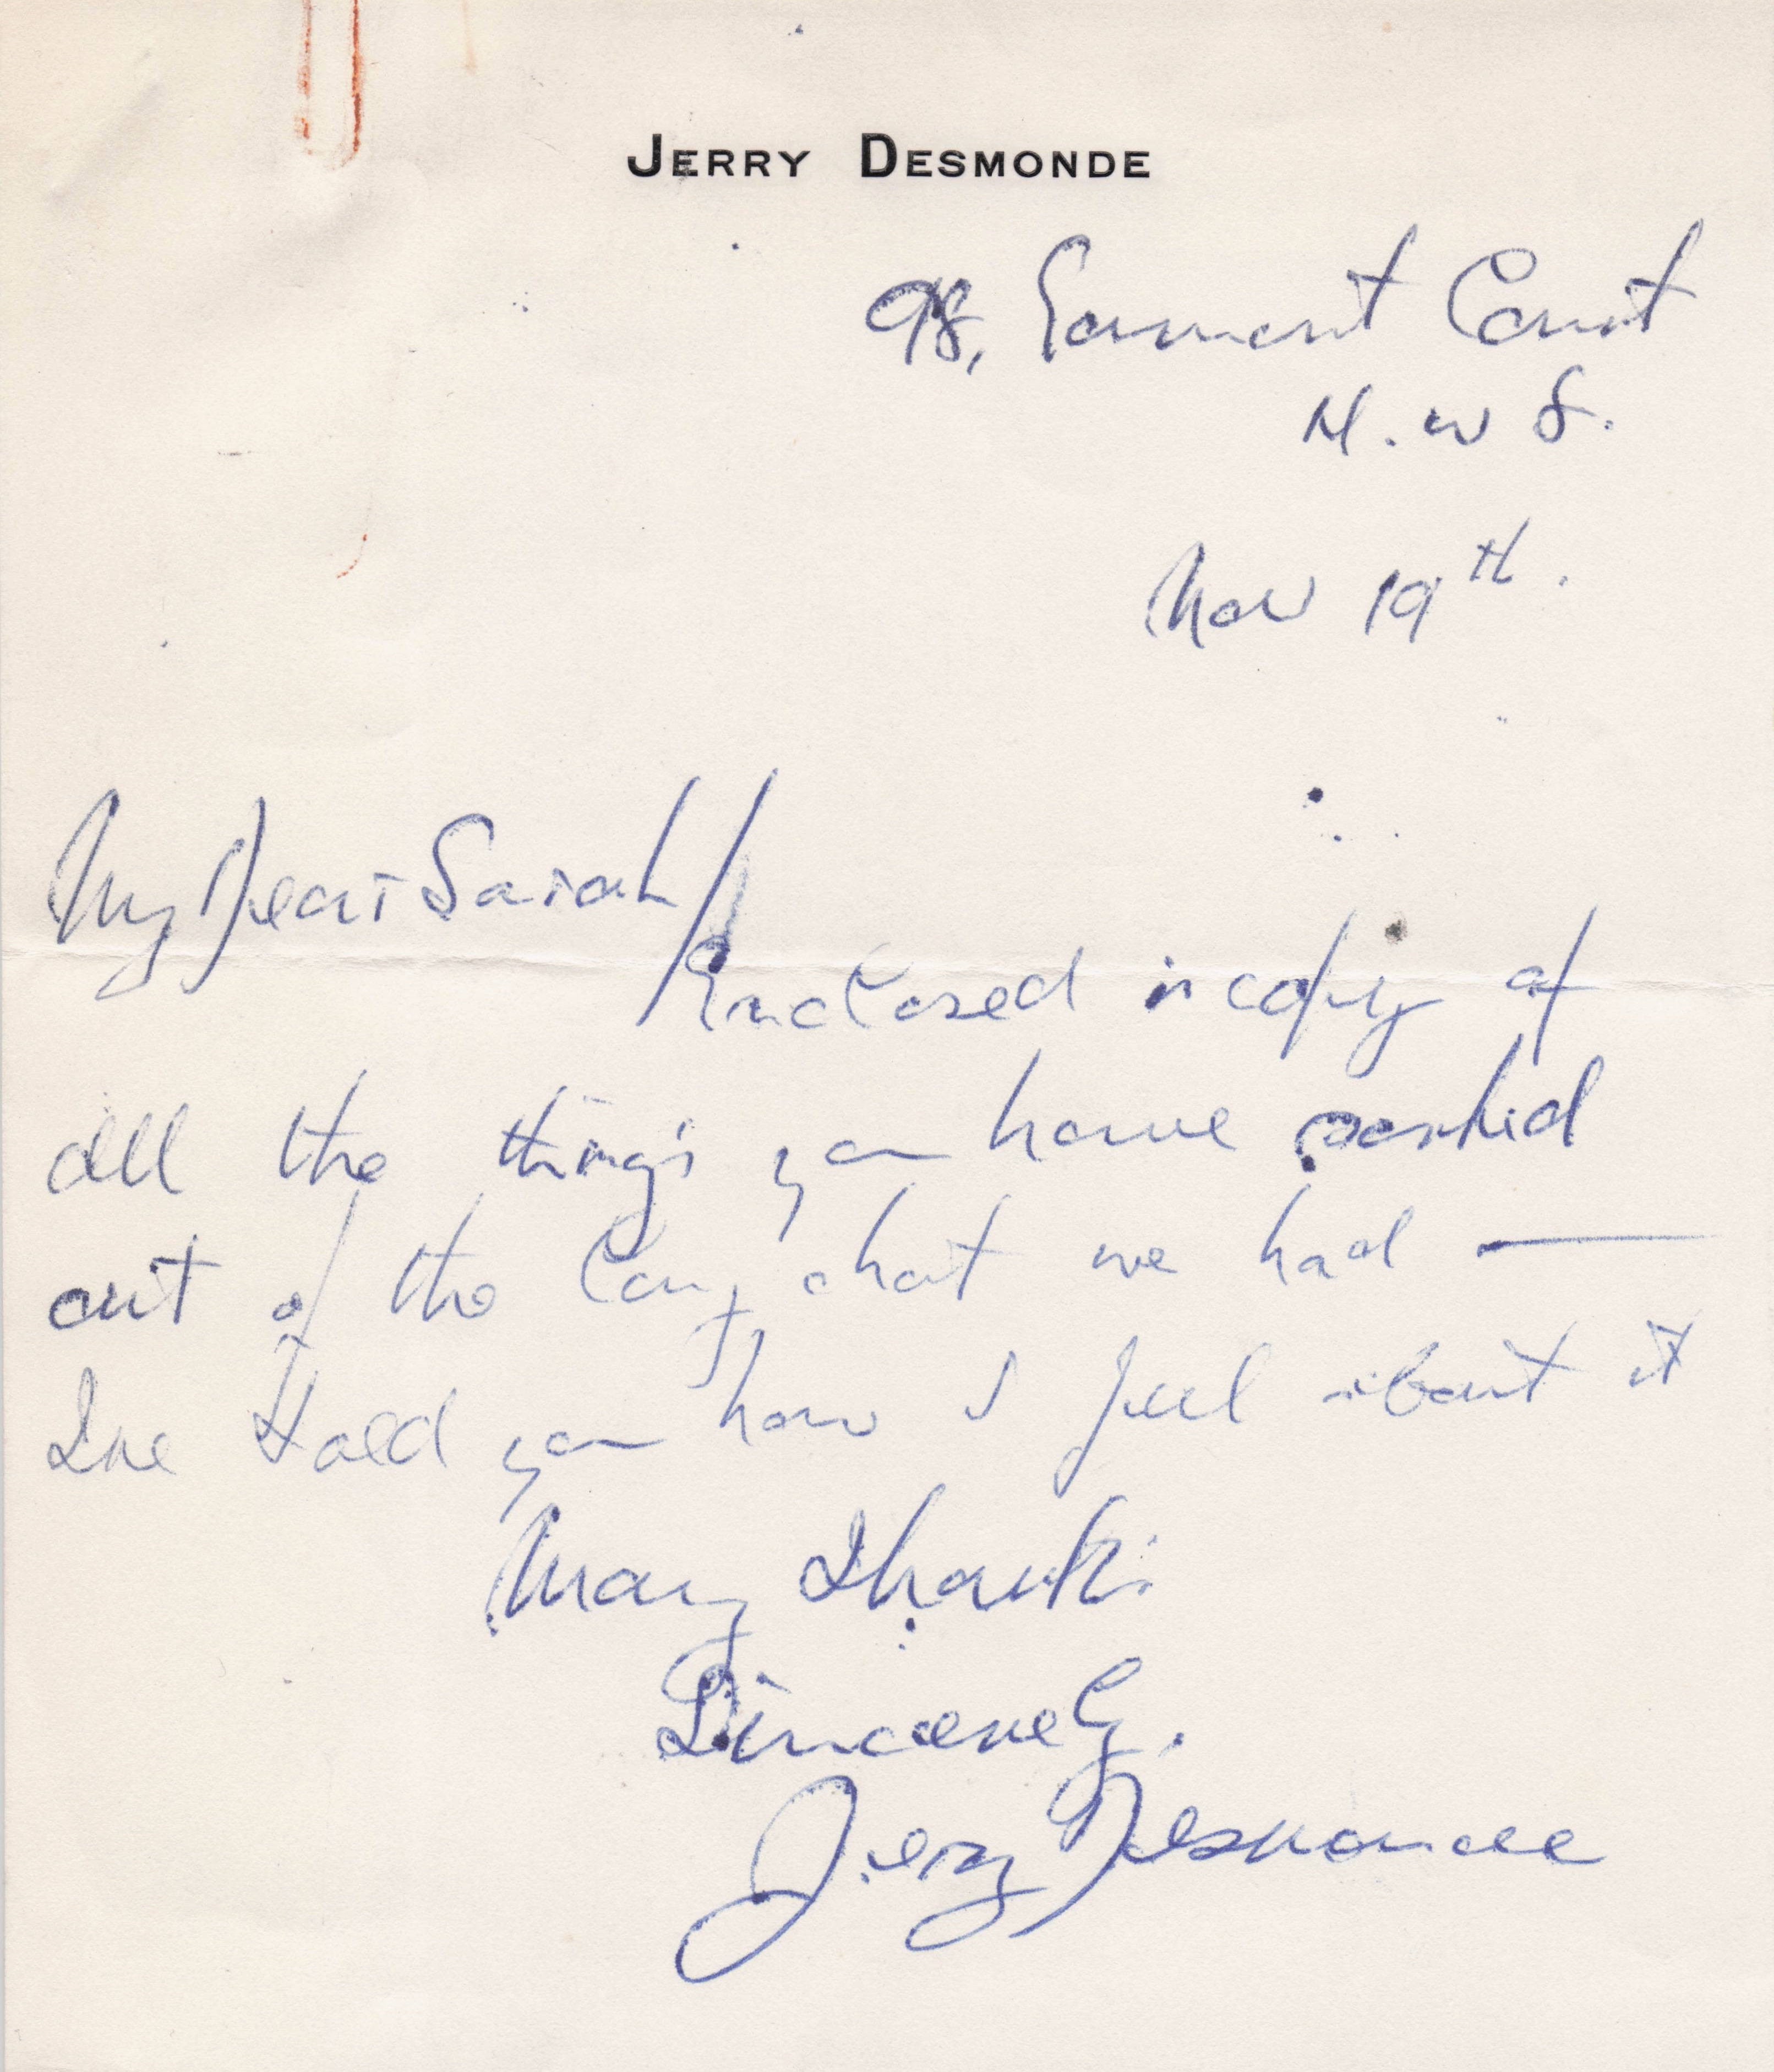 JERRY DESMONDE
98, Eamont Court
N.W 8.
Nov 19th.
My Dear Sarah/
Enclosed is copy of
all the things you have
out of the long chat we had —
Ive told you how I feel about it
Many Thanks
Sincerely.
Jerry Desmonde